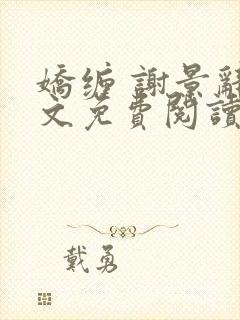 嬌缠 謝景辭
文免費閱讀
戴勇